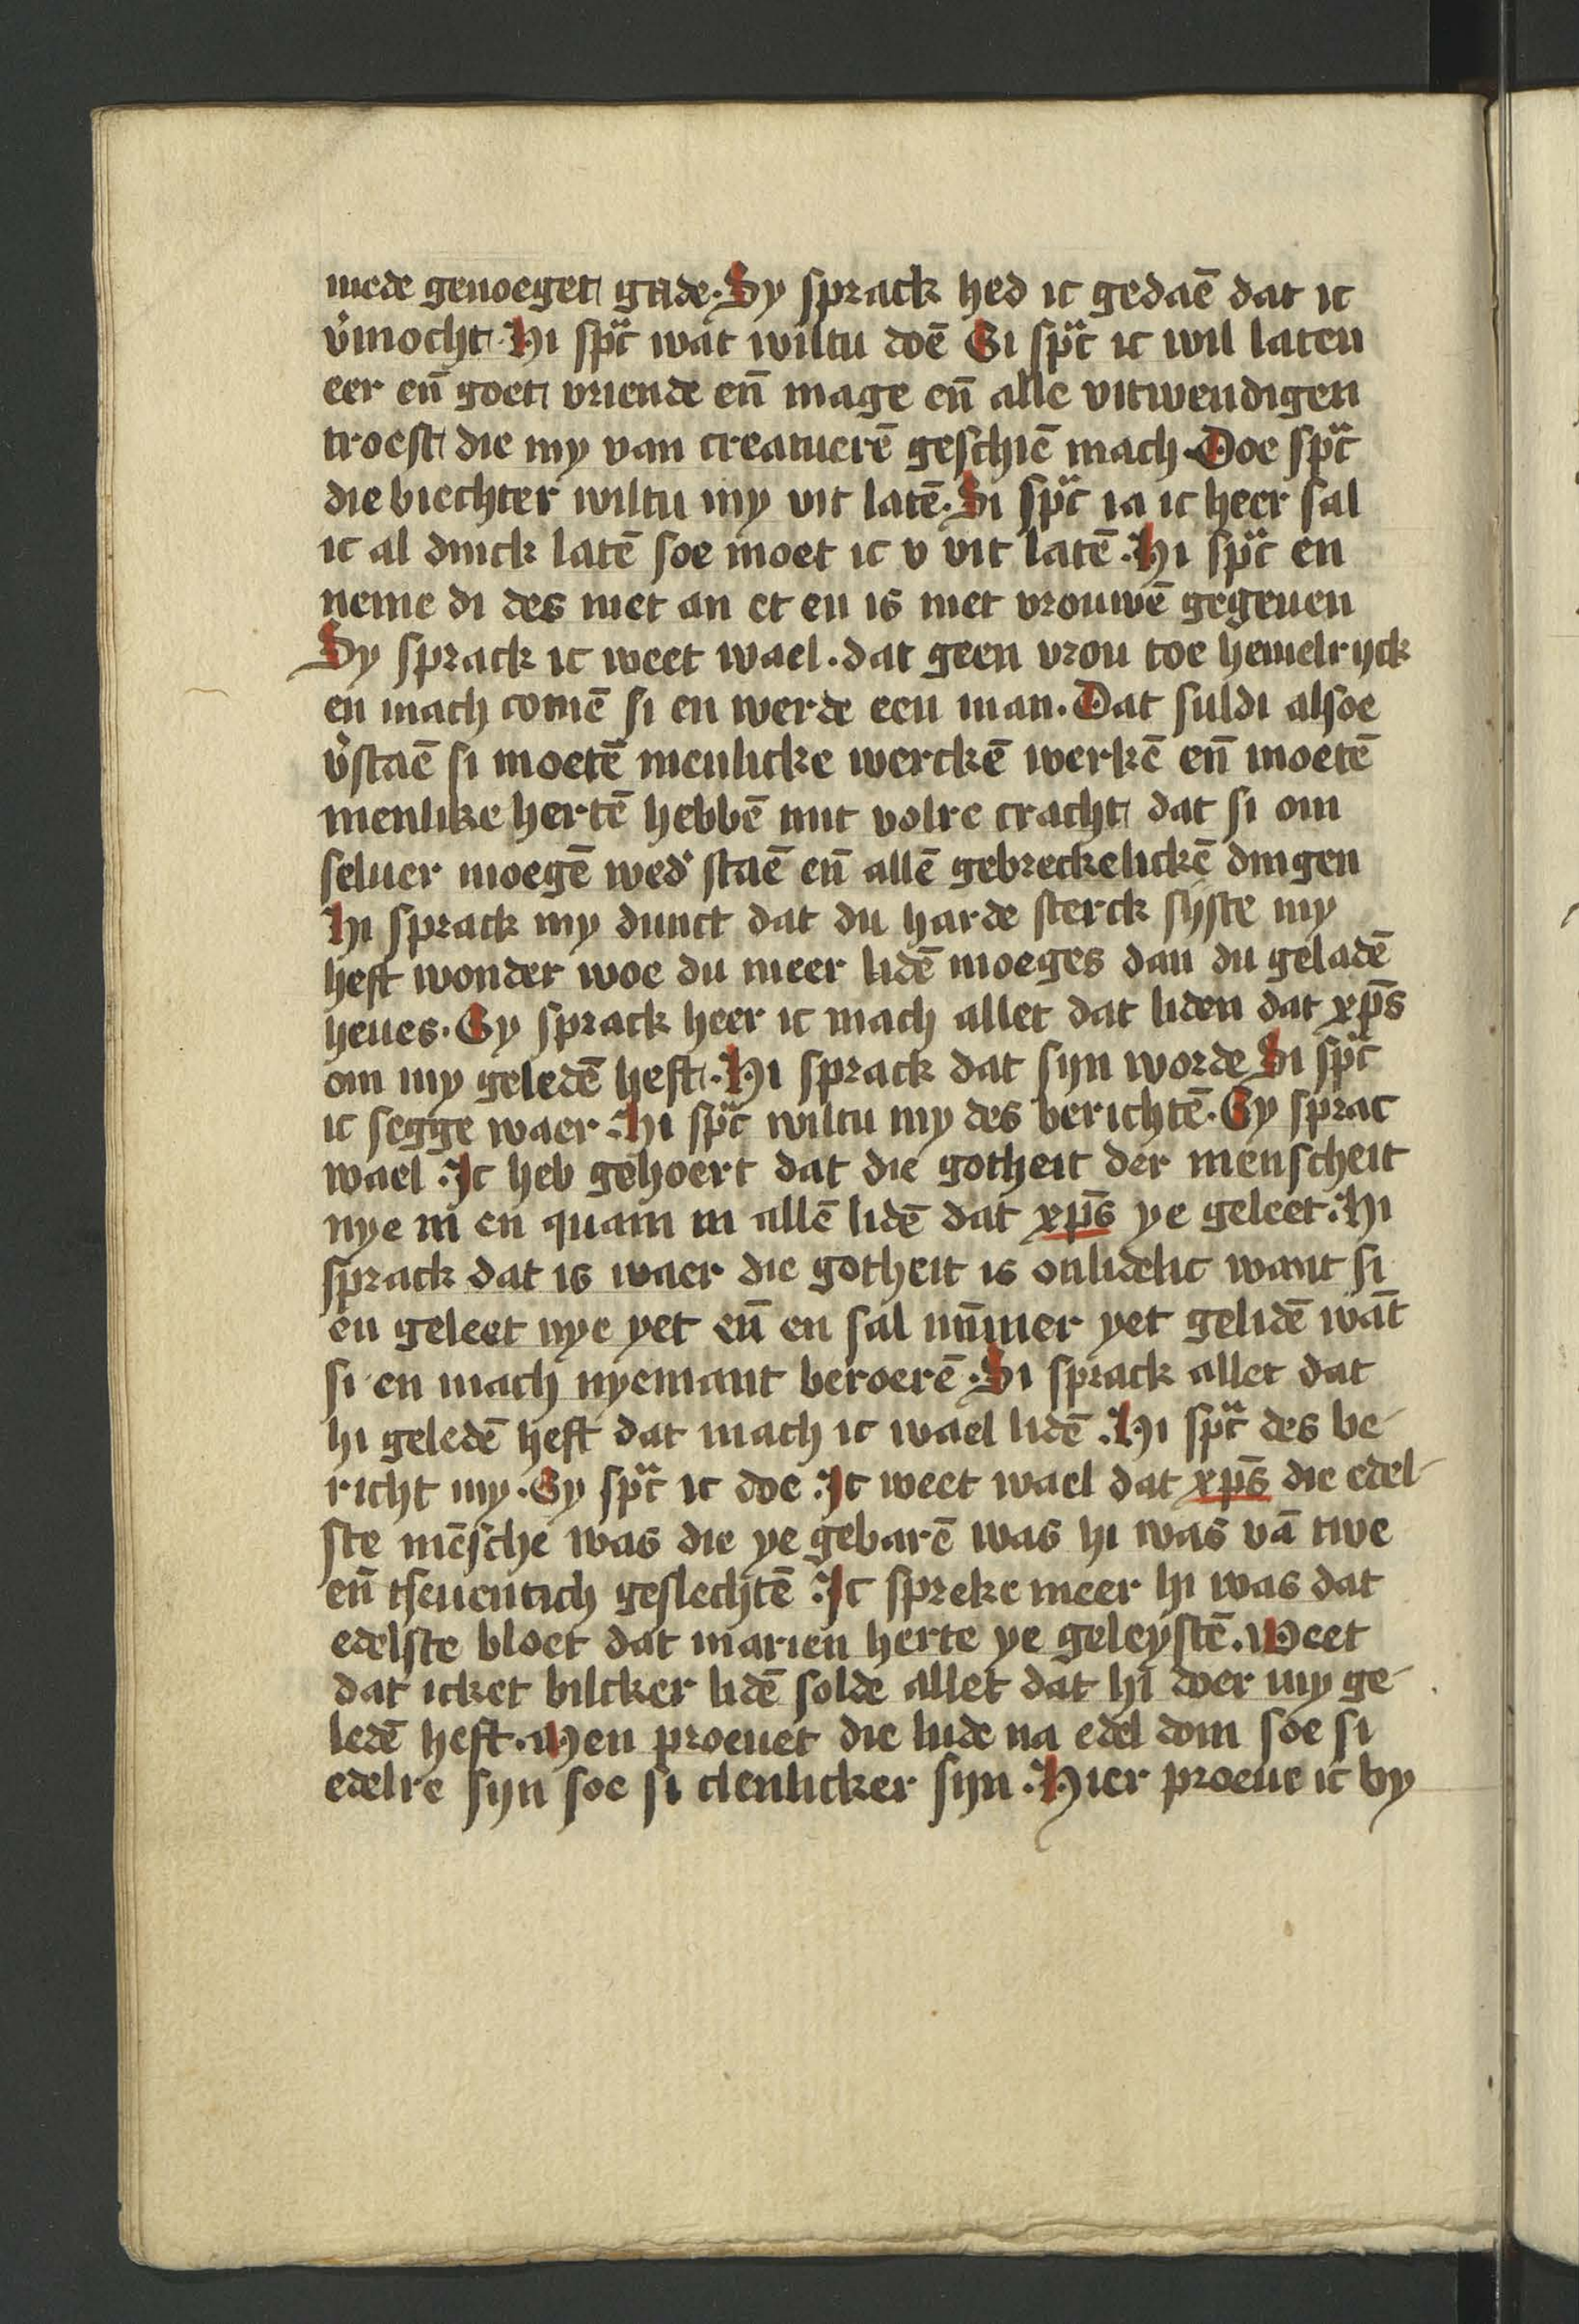 mede genoeget gade. Sy sprack hed ic gedaē dat ic
v̓mocht. Hi spͣc wat wiltu doē Si spͣc ic wil laten
eer en̄ goet vriende en̄ mage en̄ alle vitwendigen
troest die my van creatuerē geschiē mach. Doe spͣc
die biechter wiltu my vit latē. Si spͣc ia ic heer sal
ic al dinck latē soe moet ic v vit latē. Hi spͣc en
neme di des niet an et en is niet vrouwē gegeuen
Sy sprack ic weet wael. dat geen vrou toe hemelrijck
en mach comē si en werde een man. Dat suldi alsoe
v̓staē si moetē menlicke werckē werkē en̄ moetē
menlike hertē hebbē mit volre cracht dat si om
seluer moegē wed̓ staē en̄ allē gebreckelickē dingen
Hi sprack my dunct dat du harde sterck sijste my
heft wonder woe du meer lidē moeges dan du geladē
heues. Sy sprack heer ic mach allet dat liden dat xp̄s
om my geledē heft. Hi sprack dat sijn worde Si spͣc
ic segge waer. Hi spͣc wiltu my des berichtē. Sy sprac
wael. Ic heb gehoert dat die gotheit der menscheit
nye in en quam in allē lidē dat xp̄s ye geleet. Hi
sprack dat is waer die gotheit is onlidelic want si
en geleet nye yet en̄ en sal nūmer yet gelidē wāt
si en mach nyemant beroerē. Si sprack allet dat
hi geledē heft dat mach ic wael lidē. Hi spͣc des be-
richt my. Sy spͣc ic doe. Ic weet wael dat xp̄s die edel-
ste mēsche was die ye gebarē was hi was vā twe
en̄ tseuentich geslechtē. Ic spreke meer hi was dat
edelste bloet dat marien herte ye geleystē. Weet
dat icket bilcker lidē solde allet dat hi doer my ge-
ledē heft. Men proeuet die lude na edel dom soe si
edelre sijn soe si clenlicker sijn. Hier proeue ic by